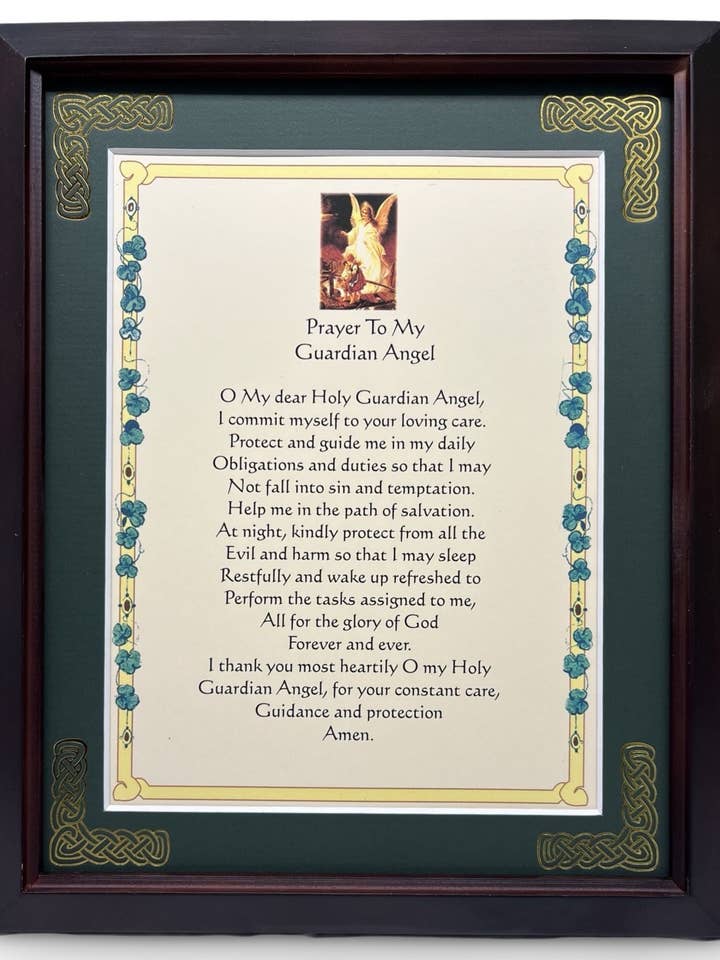 Prayer To My
Guardian Angel
O My dear Holy Guardian Angel,
I commit myself to your loving care.
Protect and guide me in my daily
Obligations and duties so that I may
Not fall into sin and temptation.
Help me in the path of salvation.
At night, kindly protect from all the
Evil and harm so that I may sleep
Restfully and wake up refreshed to
Perform the tasks assigned to me,
All for the glory of God
Forever and ever.
I thank you most heartily O my Holy
Guardian Angel, for your constant care,
Guidance and protection
Amen.